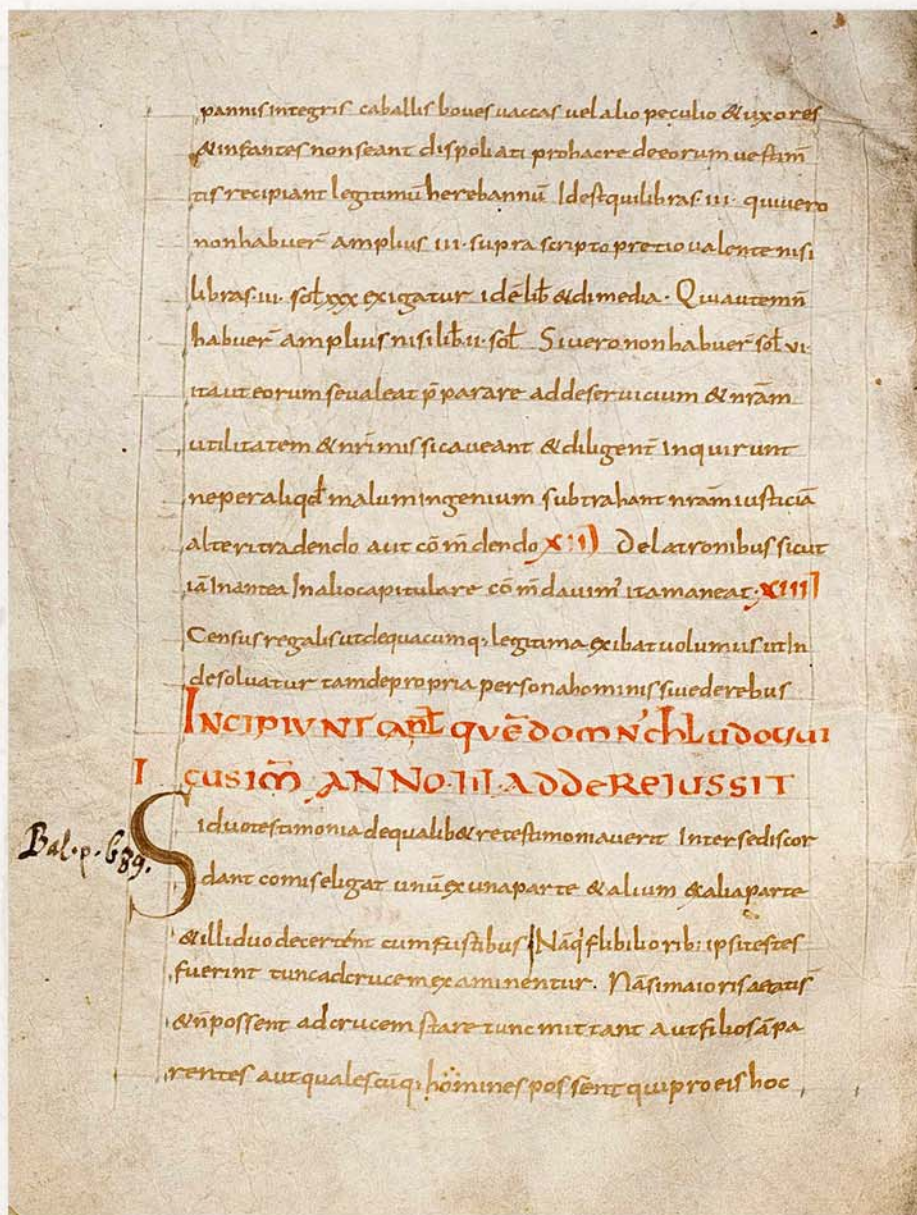 pannis integris caballis boves vaccas vel alio peculio & uxores
& infantes non seant dispoliati pro hac re de eorum vestim̄
tis recipiant legitimū herebannū Idest qui libras · iii · qui vero
non habuer̄ amplius iii · supra scripto pretio valente nisi
libras · iii · sol̄ xxx exigatur idē lib̄ & dimedia · Qui autem n̄
habuer̄ amplius nisi lib̄ · ii · sol̄ Si vero non habuer̄ sol̄ vi ·
ita ut eorum se valeat p̄parare ad de servicium & nr̄am
utilitatem & nr̄i missi caveant & diligent̄ Inquirunt
ne per aliqd̄ malum ingenium subtrahant nr̄am iusticiā
alteri tradendo aut cōm̄dendo XII) De latronibus sicut
iā In antea In alio capitulare cōm̄davim' ita maneat · XIII)
Census regalis ut de quacumq; legitima exibat volumus ut In
de solvatur tam de propria persona hominis sive de rebus
INCIPIVNT cap̄l quē domn' chLudovui
I cus im̄ ANNO · III · ADDERE IUSSIT
Si duo testimonia de qualib& re testimoniaverit Inter se discor
Bal. p. 689.
dant comis eligat unū ex una parte & alium & alia parte
& illi duo decertent cum fustibus Nāq' flibiliorib; ipsi testes
fuerint tunc ad crucem examinentur . Nā si maioris aetatis
& n̄ possent ad crucem stare tunc mittant aut filios ā pa
rentes aut qualescūq; homines possent qui pro eis hoc